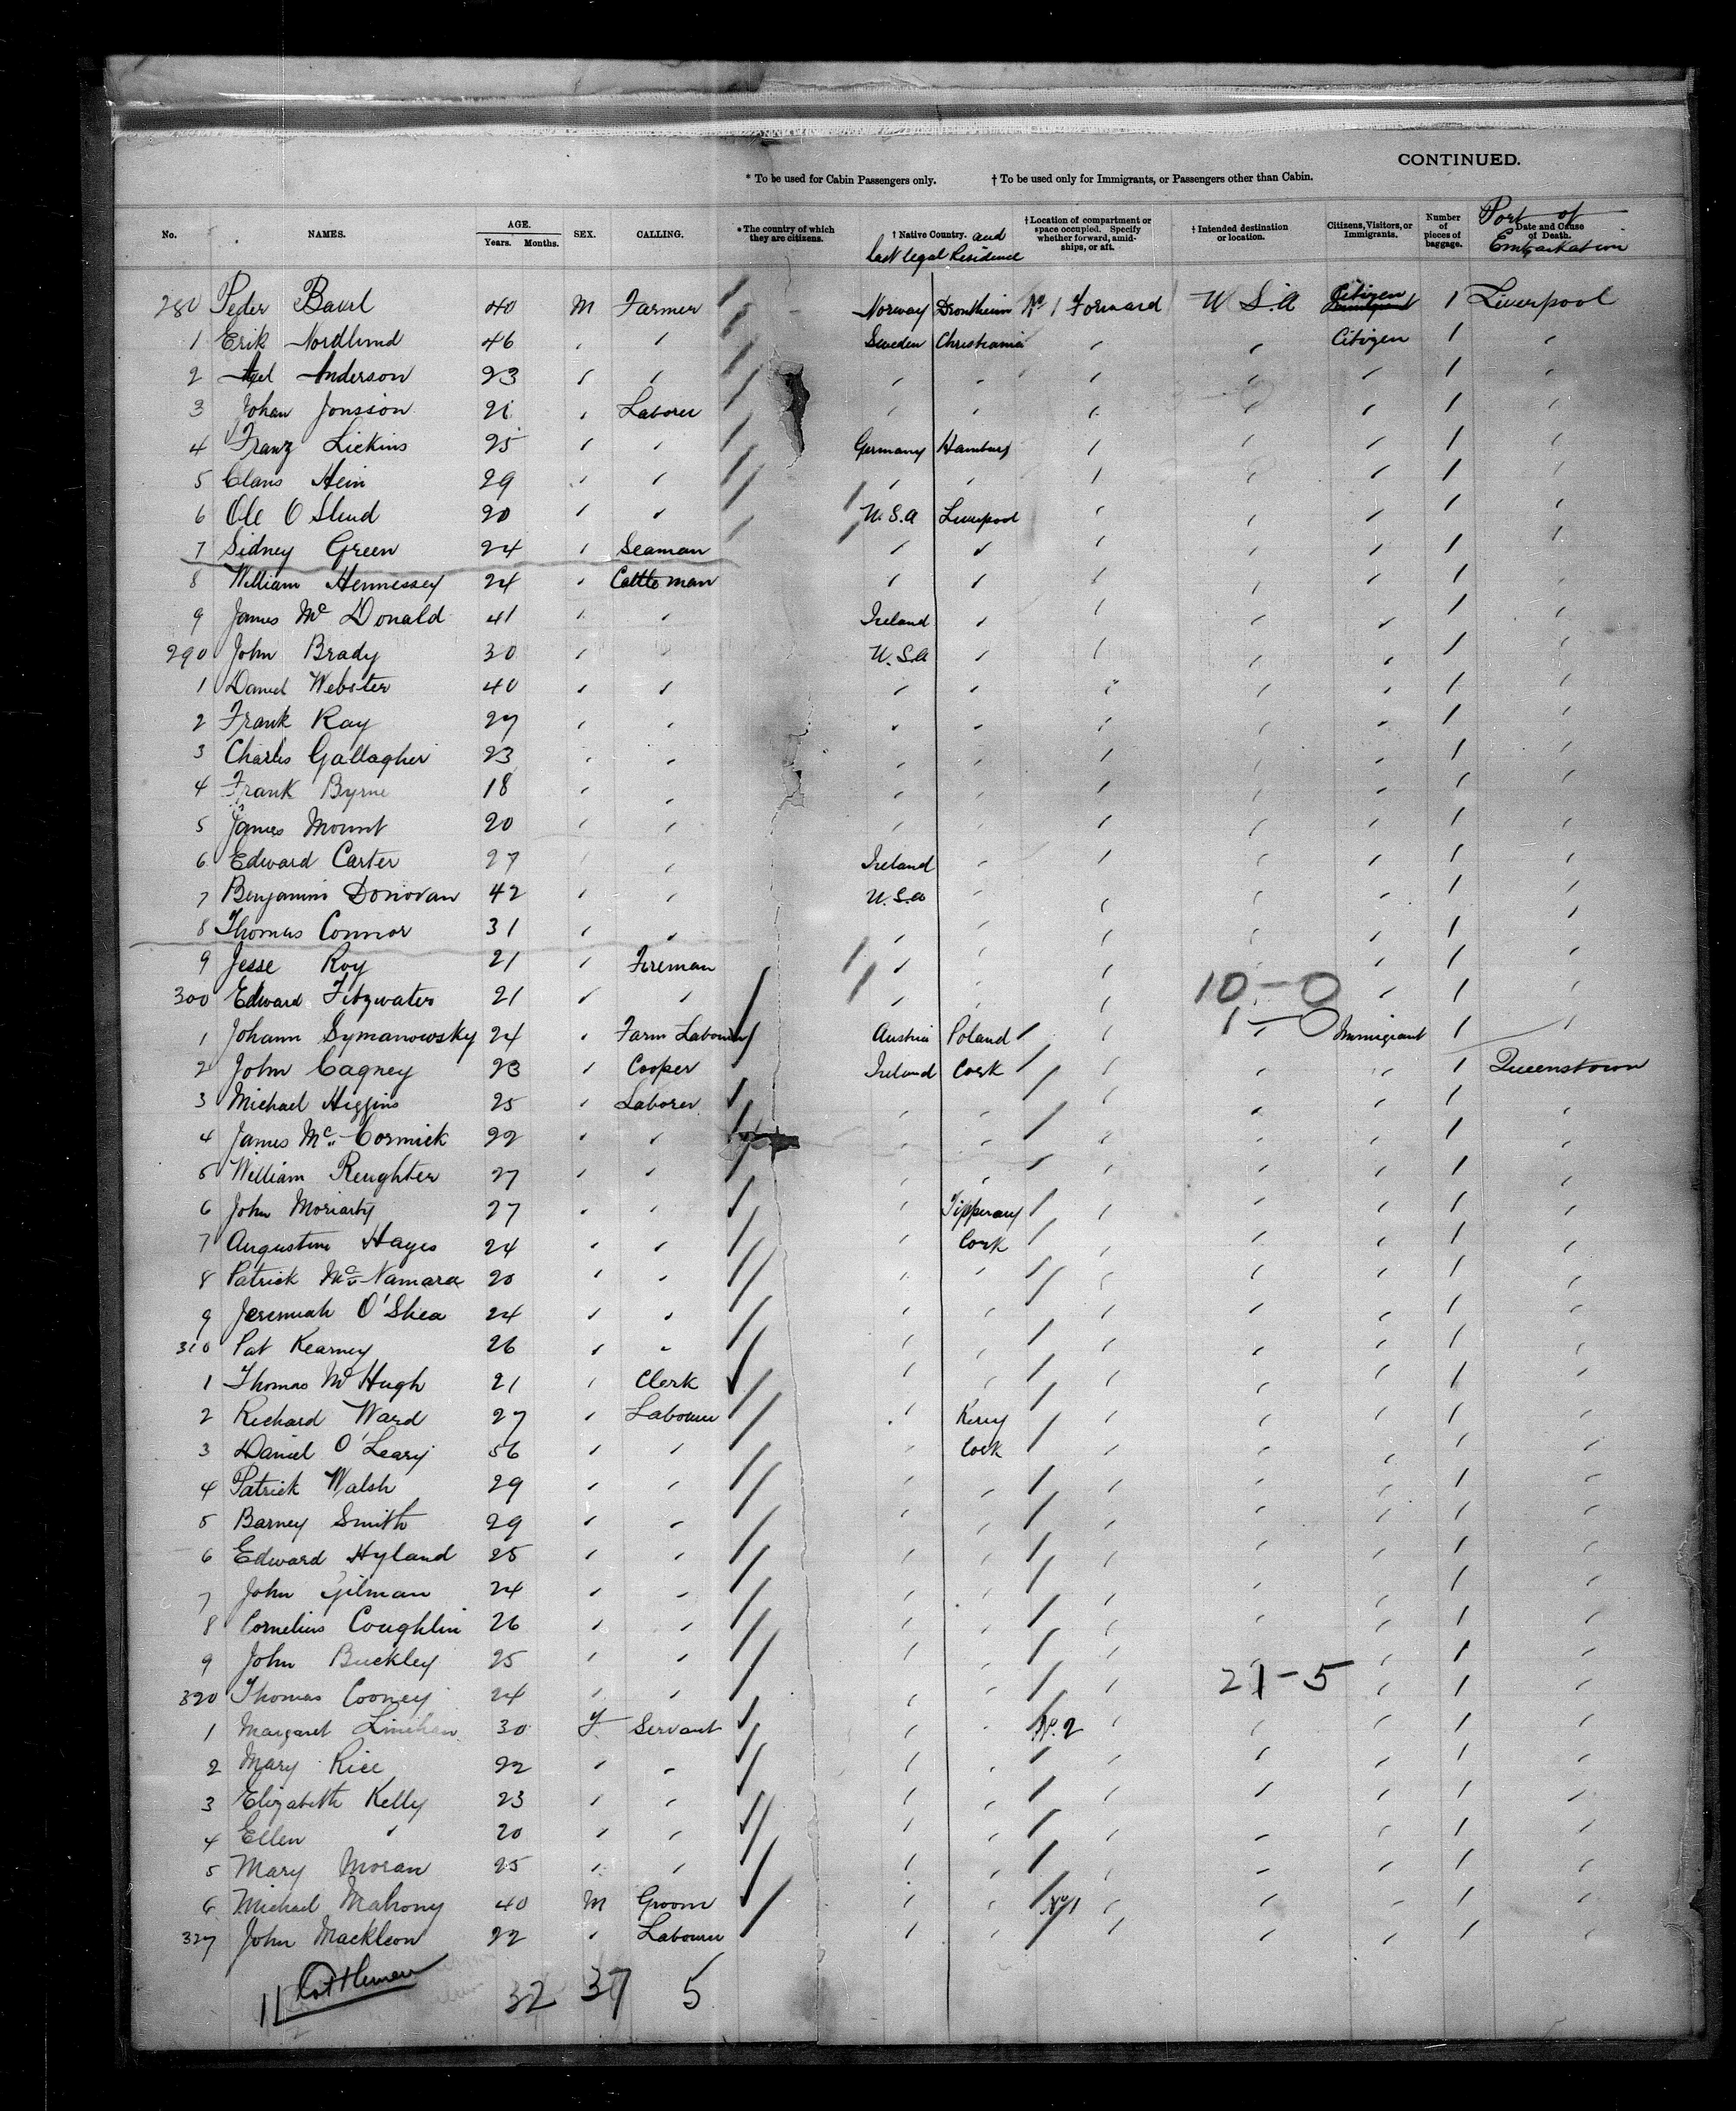 CONTINUED.
* To be used for Cabin Passengers only. † To be used only for Immigrants, or Passengers other than Cabin.
No. NAMES. AGE. Years. Months. SEX. CALLING. * The country of which they are citizens. † Native Country. and last legal Residence † Location of compartment or space occupied. Specify whether forward, amidships, or aft. † Intended destination or location. Citizens, Visitors, or Immigrants. Number of pieces of baggage. Date and Cause of Death. Port of Embarkation
280 Peder 40 M Farmer Norway Drontheim No 1 Forward U S.A Citizen 1 Liverpool
1 Erik Nordlund 46 " " Sweden Christiania " " Citizen 1 "
2 Axel Anderson 23 " " " " " " " 1 "
3 Johan Jonsson 21 " Laborer " " " " " 1 "
4 Franz Lickins 25 " " Germany Hamburg " " " 1 "
5 Claus Hein 29 " " " " " " " 1 "
6 Ole O 20 " " U.S.A Liverpool " " " 1 "
7 Sidney Green 24 " Seaman " " " " " 1 "
8 William Hennessey 24 " Cattleman " " " " " 1 "
9 James Mc Donald 41 " " Ireland " " " " 1 "
290 John Brady 30 " U.S.A " " " " 1 "
1 Daniel Webster 40 " " " " " " " 1 "
2 Frank Ray 27 " " " " " " " 1 "
3 Charles Gallagher 23 " " " " " " " 1 "
4 Frank Byrne 18 " " " " " " " 1 "
5 James Mount 20 " " " " " " " 1 "
6 Edward Carter 27 " " Ireland " " " " 1 "
7 Benjamin Donovan 42 " " U.S.A " " " " 1 "
8 Thomas Connor 31 " " " " " " " 1 "
9 Jesse Roy 21 " Fireman " " " " 1 "
300 Edward Fitzwater 21 " " " " " 10-0 " 1 "
1 Johann Symanowsky 24 " Farm Labourer Austria Poland " 1-0 " Immigrant 1 "
2 John Cagney 23 " Cooper Ireland Cork " " " 1 Queenstown
3 Michael Higgins 25 " Laborer " " " " " 1 "
4 James Mc Cormick 22 " " " " " " " 1 "
5 William Reughter 27 " " " " " " " 1 "
6 John Moriarty 27 " " " Tipperary " " " 1 "
7 Augustine Hayes 24 " " " Cork " " " 1 "
8 Patrick McNamara 20 " " " " " " " 1 "
9 Jeremiah O'Shea 24 " " " " " " " 1 "
310 Pat Kearney 26 " " " " " " " 1 "
1 Thomas McHugh 21 " Clerk " " " " " 1 "
2 Richard Ward 27 " Labourer " Kerry " " " 1 "
3 Daniel O'Leary 56 " " " Cork " " " 1 "
4 Patrick Walsh 29 " " " " " " " 1 "
5 Barney Smith 29 " " " " " " " 1 "
6 Edward Hyland 25 " " " " " " " 1 "
7 John Gilman 24 " " " " " " " 1 "
8 Cornelius Coughlin 26 " " " " " " " 1 "
9 John Buckley 25 " " " " " " " 1 "
320 Thomas Cooney 24 " " " " " 21-5 " 1 "
1 Margaret Linehan 30 F Servant " " No. 2 " " " 1 "
2 Mary Rice 22 " " " " " " " 1 "
3 Elizabeth Kelly 23 " " " " " " " 1 "
4 Ellen " 20 " " " " " " " 1 "
5 Mary Moran 25 " " " " " " " 1 "
6 Michael Mahony 40 M Groom " " No 1 " " " 1 "
327 John Mackleon 22 " Labourer " " " " " 1 "
11 Cattlemen 32 37 5